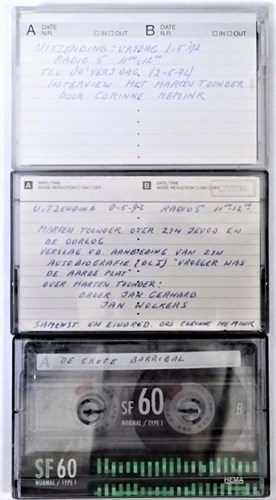 A DATE N.R. □IN □OUT
B DATE N.R. □IN □OUT
UITZENDING: VRIJDAG 1-5-'92
RADIO 5 11⁰⁰-12⁰⁰
INTERVIEW MET MARTEN TOONDER
DOOR CORINNE HEMINK
A DATE/TIME NOISE REDUCTION □ON □OFF
B DATE/TIME NOISE REDUCTION □ON □OFF
UITZENDING 8-5-92 RADIO 5 11⁰⁰-12⁰⁰
MARTEN TOONDER OVER ZYN JEUGD EN
DE OORLOG
VERSLAG V.D. AANBIEDING VAN ZYN
AUTOBIOGRAFIE (DL I) "VROEGER WAS
DE AARDE PLAT"
OVER MARTEN TOONDER:
BROER JAN GERHARD
JAN WOLKERS
SAMENST EN EINDRED. DRS CORINNE HEMINK
A DE GROTE BARRIBAL
SF 60
NORMAL / TYPE I
B
SF 60
NORMAL / TYPE I
HEMA